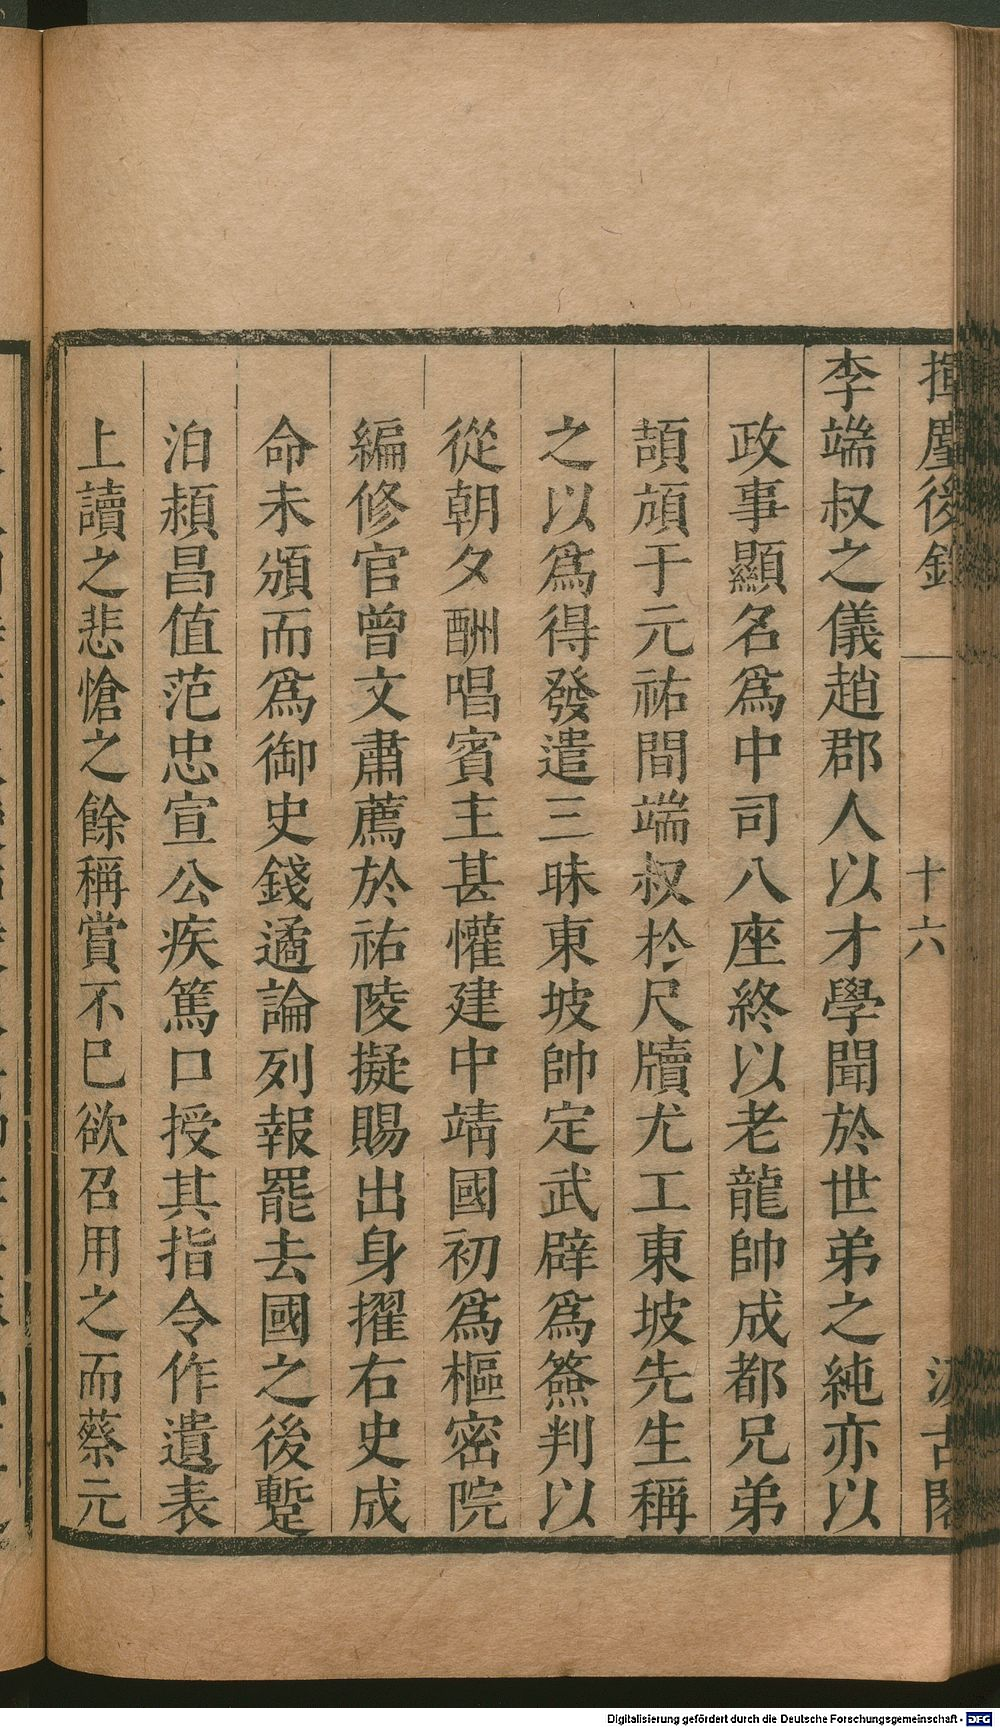 揮麈後錄 十六 汲古閣
李端叔之儀趙郡人以才學聞於世弟之純亦以
政事顯名爲中司八座終以老龍帥成都兄弟
頡頏于元祐間端叔於尺牘尤工東坡先生稱
之以爲得發遣三昧東坡帥定武辟爲簽判以
從朝夕酬唱賓主甚懽建中靖國初爲樞密院
編修官曾文肅薦於祐陵擬賜出身擢右史成
命未頒而爲御史錢遹論列報罷去國之後蹔
泊潁昌值范忠宣公疾篤口授其指令作遺表
上讀之悲愴之餘稱賞不已欲召用之而蔡元
Digitalisierung gefördert durch die Deutsche Forschungsgemeinschaft - DFG